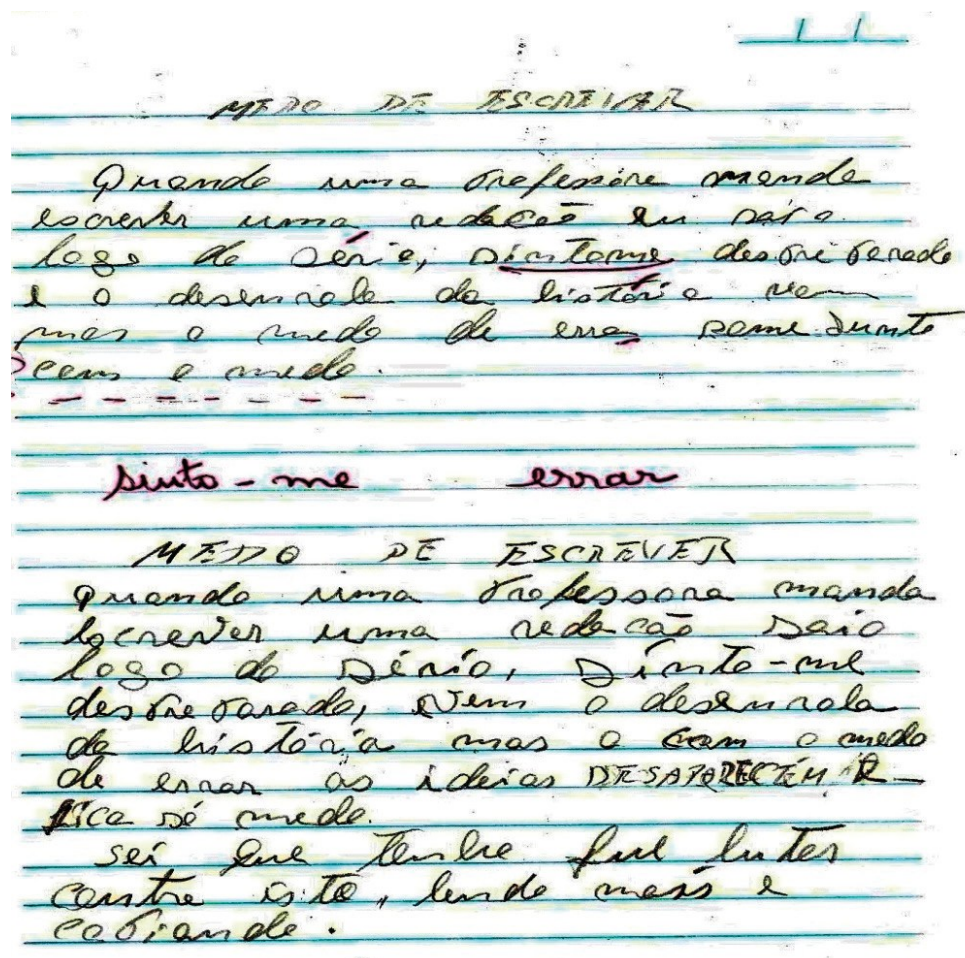 MEDO DE ESCREVER
Quando uma professora manda
escrever uma redação eu saio
logo do sério, sintome despreparado
e o desenrola da história vem
mas o medo de erra some junto
com o medo.
sinto-me errar
MEDO DE ESCREVER
Quando uma professora manda
escrever uma redacão saio
logo do sério, sinto-me
despreparado, vem o desenrola
da história mas o com o medo
de errar as ideias DESAPARECEM E
fica só medo.
sei que tenho que luter
contra isto, lendo mais e
copiando.